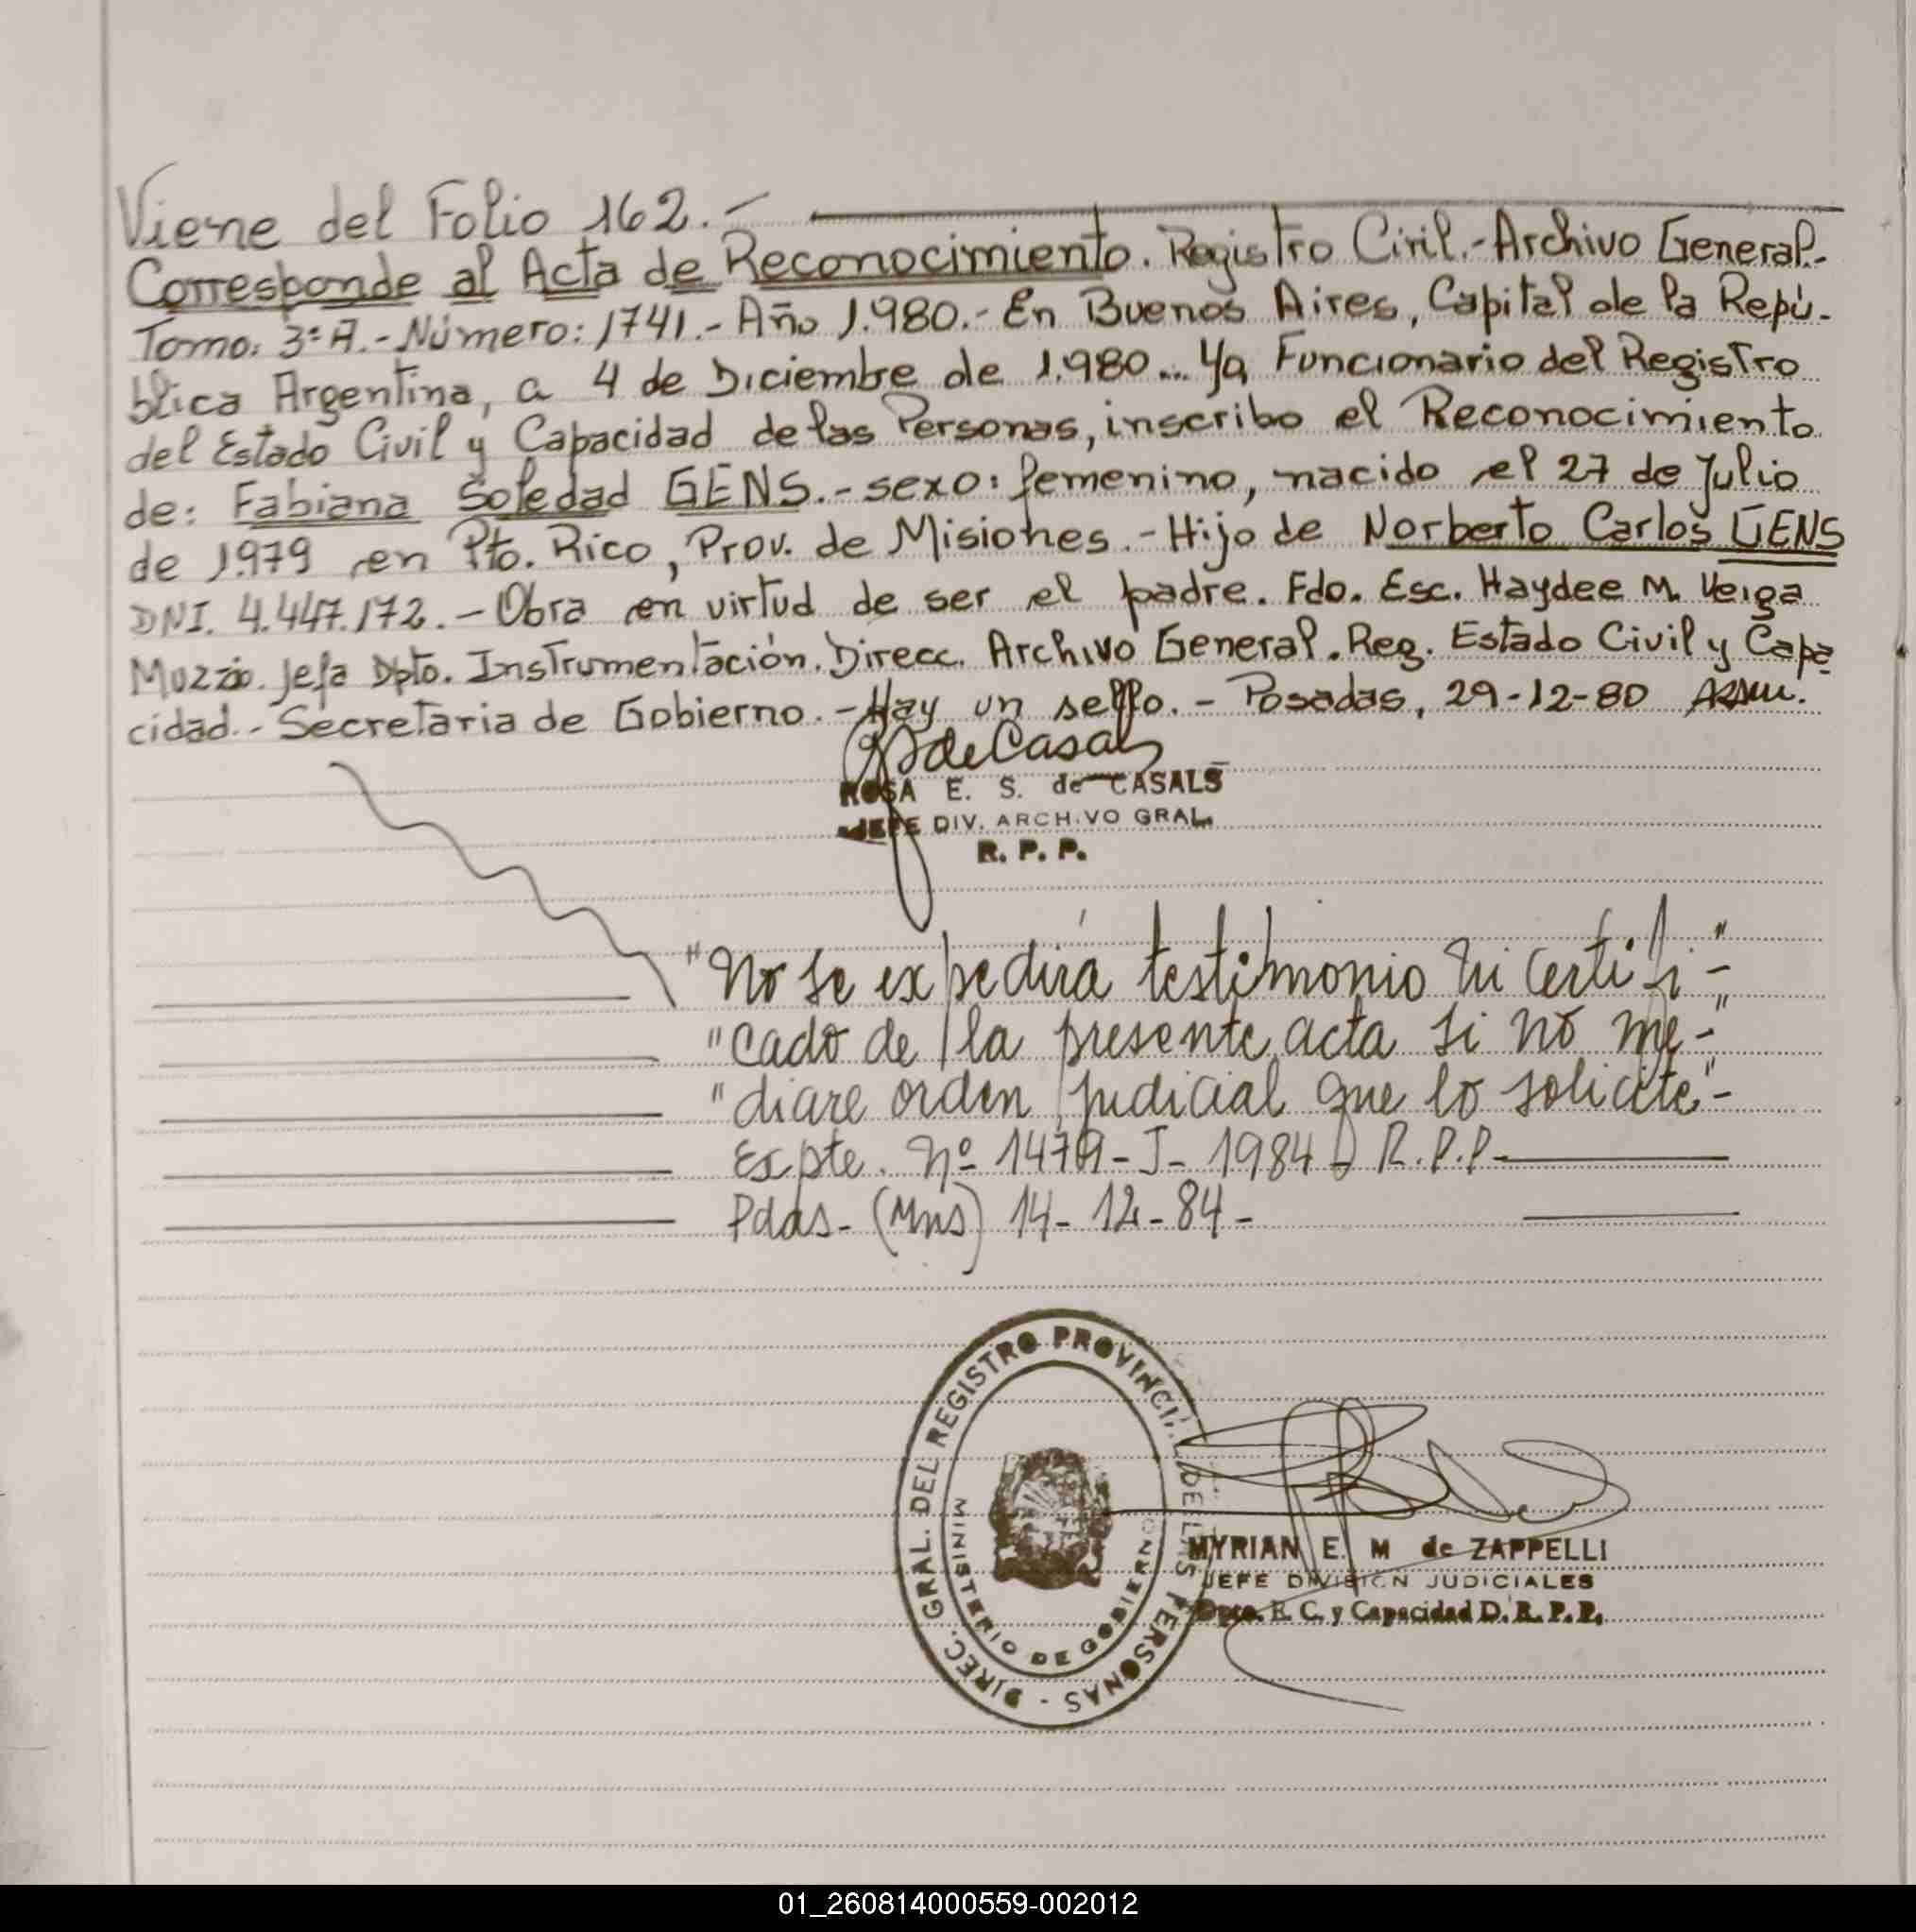 Viene del Folio 162.-
Corresponde al Acta de Reconocimiento. Registro Civil.- Archivo General.-
Tomo: 3º A.- Número: 1741.- Año 1.980.- En Buenos Aires, Capital de la Repú-
blica Argentina, a 4 de Diciembre de 1.980... Yo, Funcionario del Registro
del Estado Civil y Capacidad de las Personas, inscribo el Reconocimiento
de: Fabiana Soledad GENS.- sexo: femenino, nacido el 27 de Julio
de 1979 en Pto. Rico, Prov. de Misiones.- Hijo de Norberto Carlos GENS
DNI. 4.447.172.- Obra en virtud de ser el padre. Fdo. Esc. Haydee M. Veiga
Muzzio. Jefa Dpto. Instrumentación. Direcc. Archivo General. Reg. Estado Civil y Capa-
cidad.- Secretaria de Gobierno.- Hay un sello.- Posadas, 29-12-80
de Casals
ROSA E. S. de CASALS
JEFE DIV. ARCHIVO GRAL.
R. P. P.
"No se expedirá testimonio ni certifi-"
"cado de la presente acta si no me-"
"diare orden judicial que lo solicite"-
Expte. Nº 1479-J-1984 D R.P.P-
Pdas- (Mns) 14-12-84-
DIREC. GRAL. DEL REGISTRO PROVINCIAL DE LAS PERSONAS -
MINISTERIO DE GOBIERNO
MYRIAN E. M de ZAPPELLI
JEFE DIVISION JUDICIALES
Dpto. E. C. y Capacidad D. R. P. P.
01_260814000559-002012